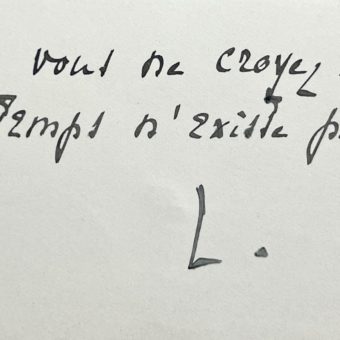 vous ne croyez
Temps n'existe
L.